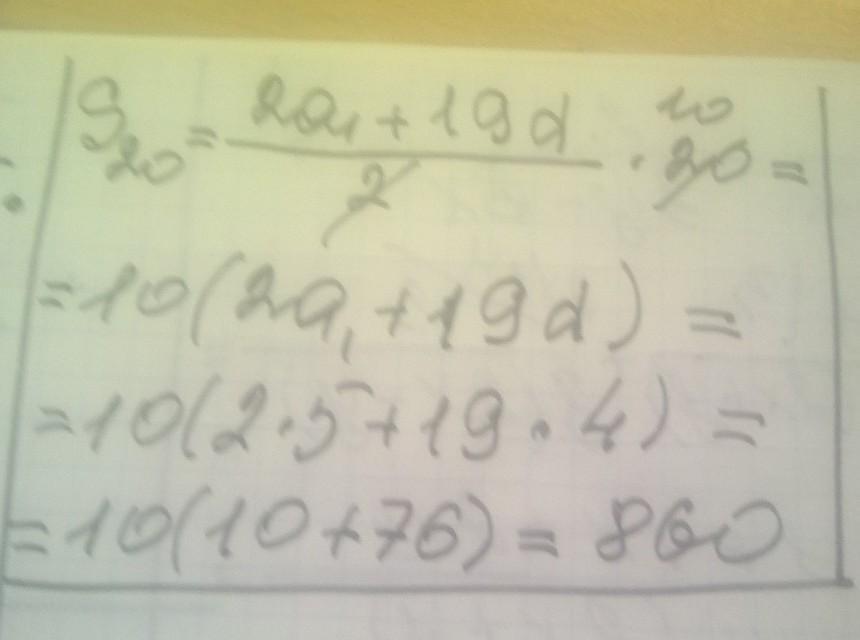 S₂₀ = (2a₁ + 19d)/2 · 20 10 =
= 10(2a₁ + 19d) =
= 10(2·5 + 19·4) =
= 10(10 + 76) = 860